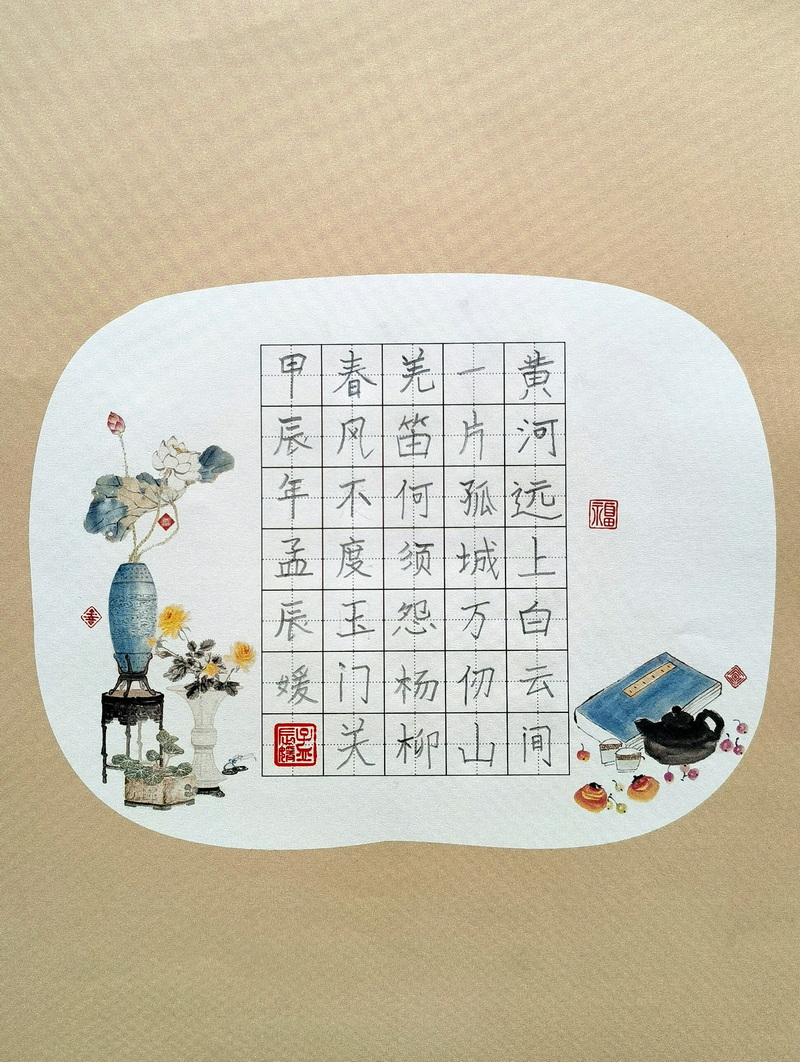 黄河远上白云间
一片孤城万仞山
羌笛何须怨杨柳
春风不度玉门关
甲辰年孟辰媛
福